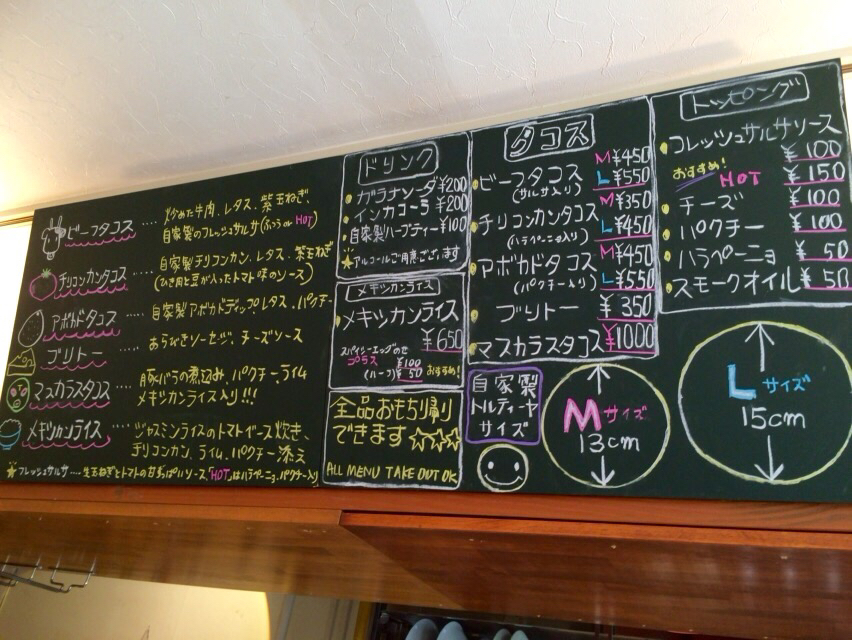 ビーフタコス …… 炒めた牛肉、レタス、紫玉ねぎ、
自家製のフレッシュサルサ(ふつうor HOT)
チリコンカンタコス …… 自家製チリコンカン、レタス、紫玉ねぎ
(ひき肉と豆が入ったトマト味のソース)
アボカドタコス …… 自家製アボカドディップ、レタス、パクチー
ブリトー …… あらびきソーセージ、チーズソース
マスカラスタコス …… 豚バラの煮込み、パクチー、ライム
メキシカンライス入り!!!
メキシカンライス …… ジャスミンライスのトマトベース炊き、
チリコンカン、ライム、パクチー添え
★フレッシュサルサ…生玉ねぎとトマトの甘ずっぱいソース、「HOT」はハラペーニョ、パクチー入り
ドリンク
ガラナソーダ ¥200
インカコーラ ¥200
自家製ハーブティー ¥100
★アルコールご用意ございます
メキシカンライス
メキシカンライス
¥650
スパイシーエッグのせ
プラス ¥100
(ハーフ) ¥50 おすすめ!
全品おもち帰り
できます ☆☆☆
ALL MENU TAKE OUT OK
タコス
ビーフタコス M ¥450
(サルサ入り) L ¥550
チリコンカンタコス M ¥350
(ハラペーニョ入り) L ¥450
アボカドタコス M ¥450
(パクチー入り) L ¥550
ブリトー ¥350
マスカラスタコス ¥1000
自家製
トルティーヤ
サイズ
Mサイズ
13cm
トッピング
フレッシュサルサソース
¥100
おすすめ! HOT ¥150
チーズ ¥100
パクチー ¥100
ハラペーニョ ¥50
スモークオイル ¥50
Lサイズ
15cm